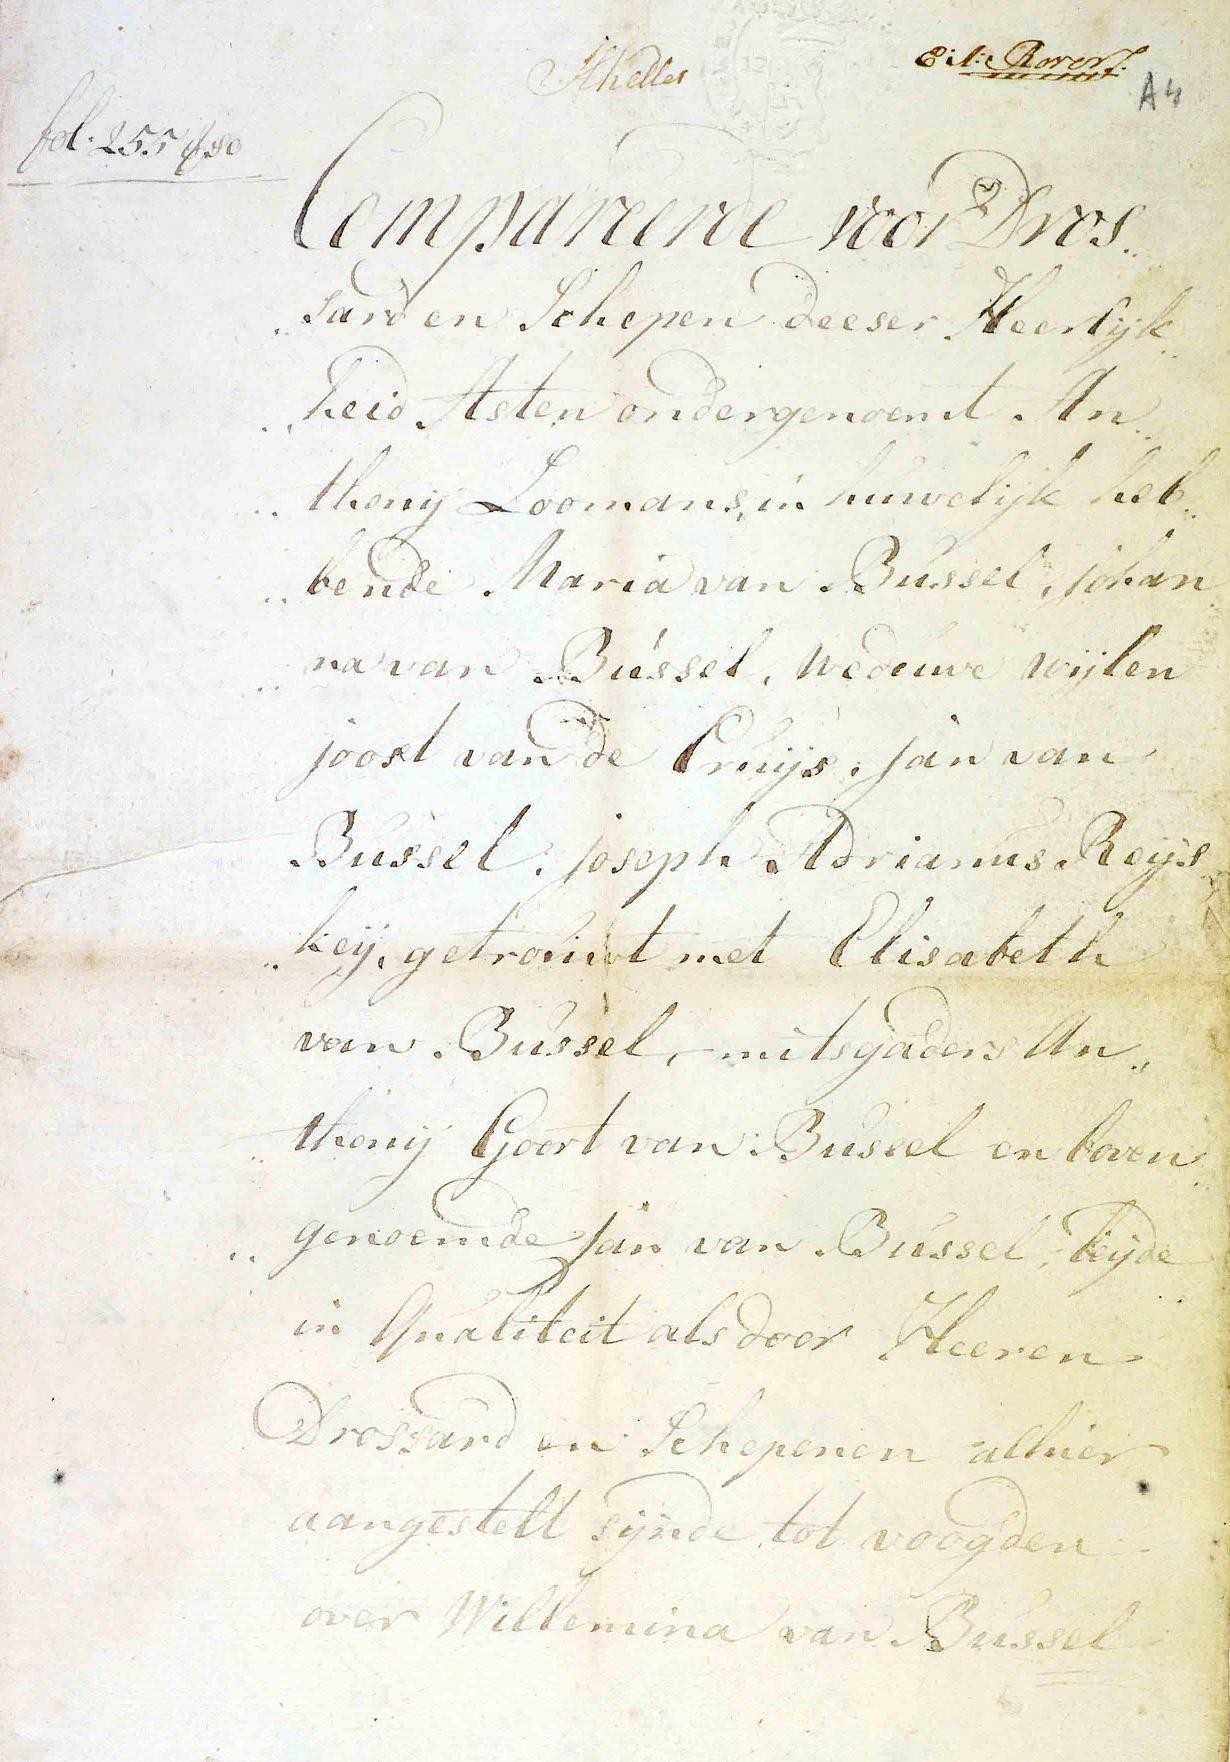 A4
fol. 255 vso
Compareerde voor Dros„
„sard en Schepen deeser Heerlijk„
„heid Asten ondergenoemt An„
„thonij Loomans, in huwelijk heb„
„bende Maria van Bussel, johan„
„na van Bussel, weduwe wijlen
joost van de Cruijs, jan van
Bussel, joseph Adrianus Reijs„
„keij, getrouwt met Elisabeth
van Bussel, mitsgaders An„
„thonij Goort van Bussel en boven„
„genoemde Jan van Bussel, beijde
in Qualiteit als door Heeren
Drossard en Schepenen alhier
aangestelt sijnde tot voogden
over Willemina van Bussel